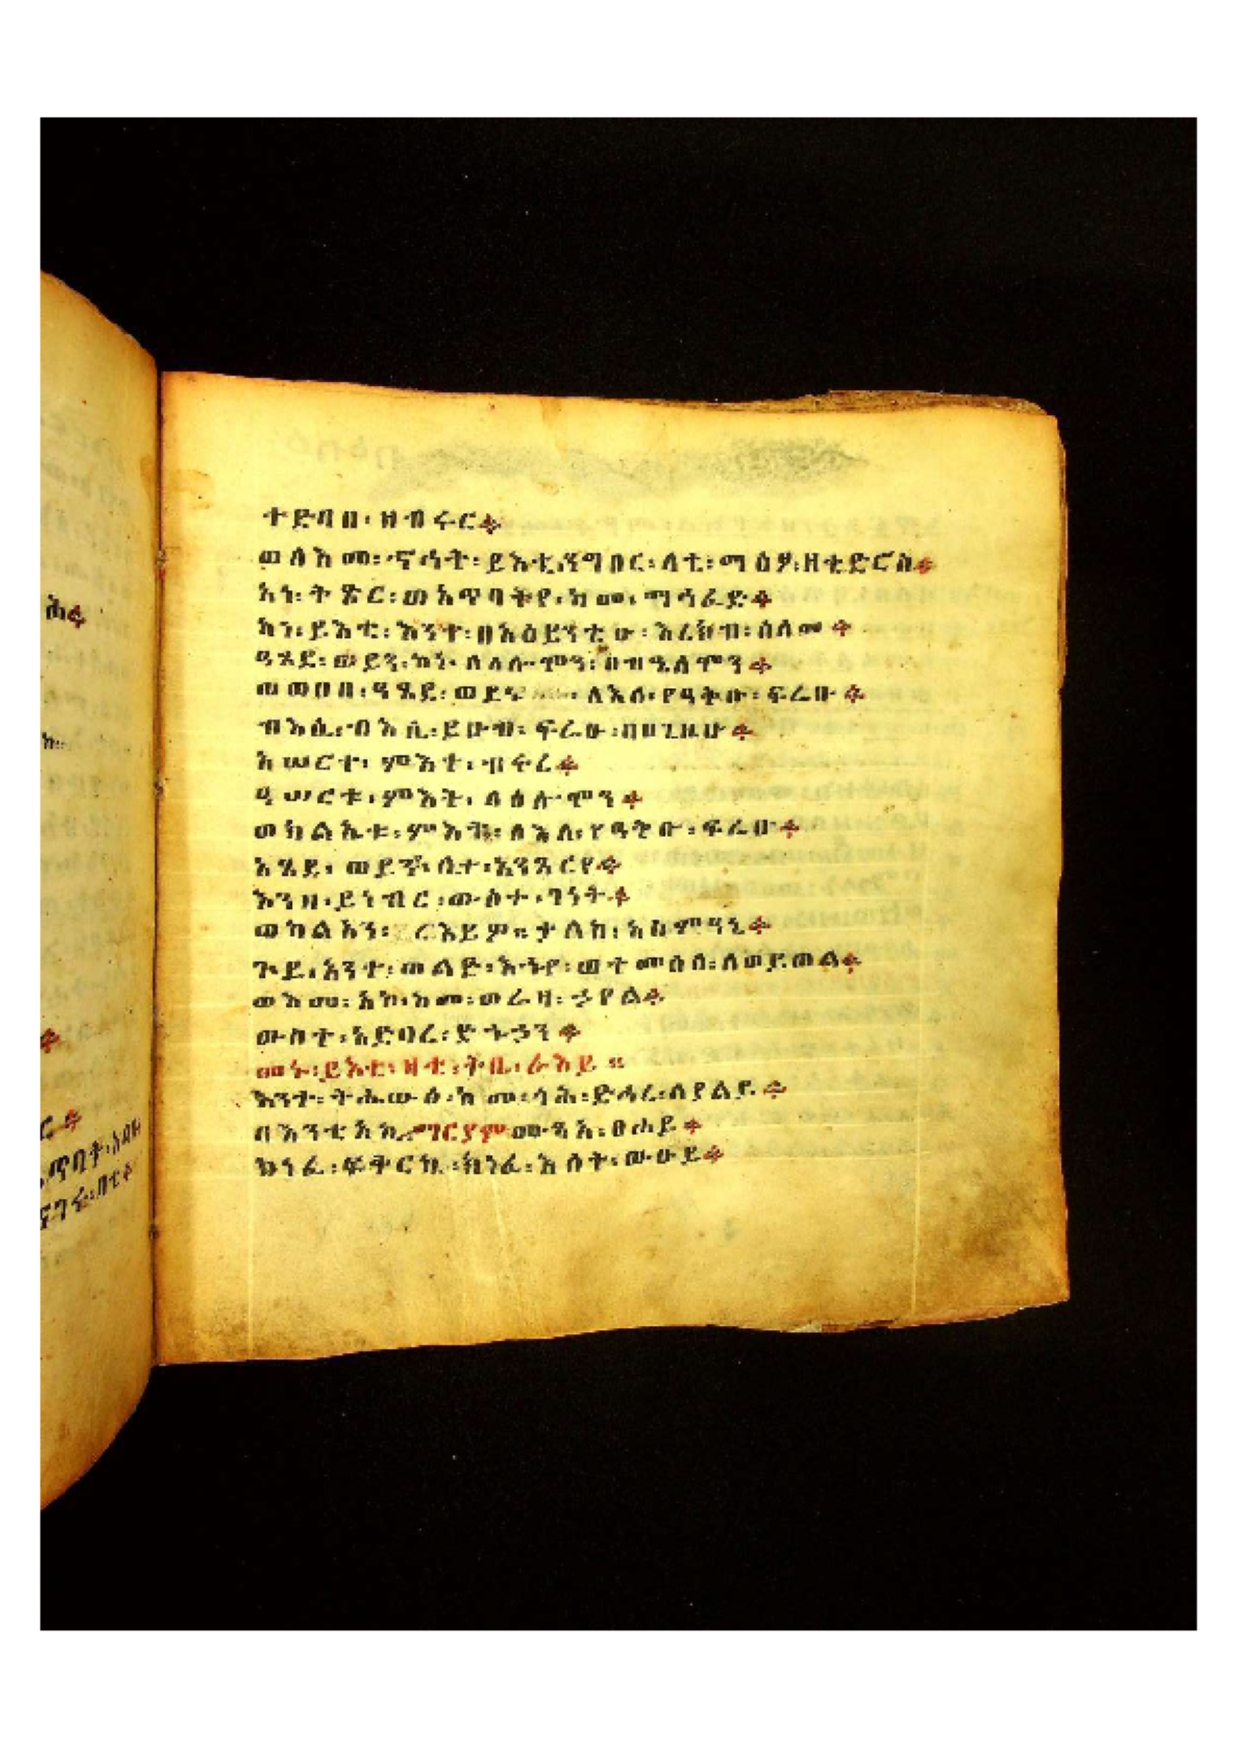 ተድባበ፡ ዘብሩር።
ወለእመ፡ ኆኅት፡ ይእቲ፡ ንግበር፡ ላቲ፡ ማዕፆ፡ ዘቄድሮስ።
አነ፡ ጥቅር፡ ወአጥባትየ፡ ከመ፡ ማኅፈድ።
አነ፡ ይእቲ፡ እንተ፡ በአዕይንቲሁ፡ እረክብ፡ ሰላመ።
ዓጸደ፡ ወይን፡ ኮነ፡ ለሰሎሞን፡ በብዔላሞን።
ወወሀበ፡ ዓጸደ፡ ወይኖ፡ ለእለ፡ የዓቅቡ፡ ፍሬሁ።
ብእሲ፡ ብእሲ፡ ይሁብ፡ ፍሬሁ፡
እሠርተ፡ ምእተ፡ ብሩረ።
ዓሠርቱ፡ ምእት፡ ለሰሎሞን።
ወክልኤቱ፡ ምእት፡ ለእለ፡ የዓቅቡ፡ ፍሬሁ።
አጸደ፡ ወይንየ፡ አንጻርየ።
እንዘ፡ ይነብር፡ ውስተ፡ ገነት።
ወካልአን፡ ታሌክ፡ አስምዓኒ።
ጕይ፡ አንተ፡ ወልድ፡ እኁየ፡ ወተመሰላ፡ ለወይጠል።
ወእመ፡ አኮ፡ ከመ፡ ወሬዛ፡ ኃየል።
ውስተ፡ አድባረ፡ ድኁኃን።
መኑ፡ ይእቲ፡ ዛቲ፡ ትቤ፡ ራእይ።
እንተ፡ ትሔውፅ፡ ከመ፡ ጎሕ፡ ድኅረ፡ ለያልይ።
በእንቲአኪ፡ ማርያም፡ ሙጻአ፡ ፀሐይ።
ክነፈ፡ ፍቅርኪ፡ ክነፈ፡ እሳት፡ ውዑይ።